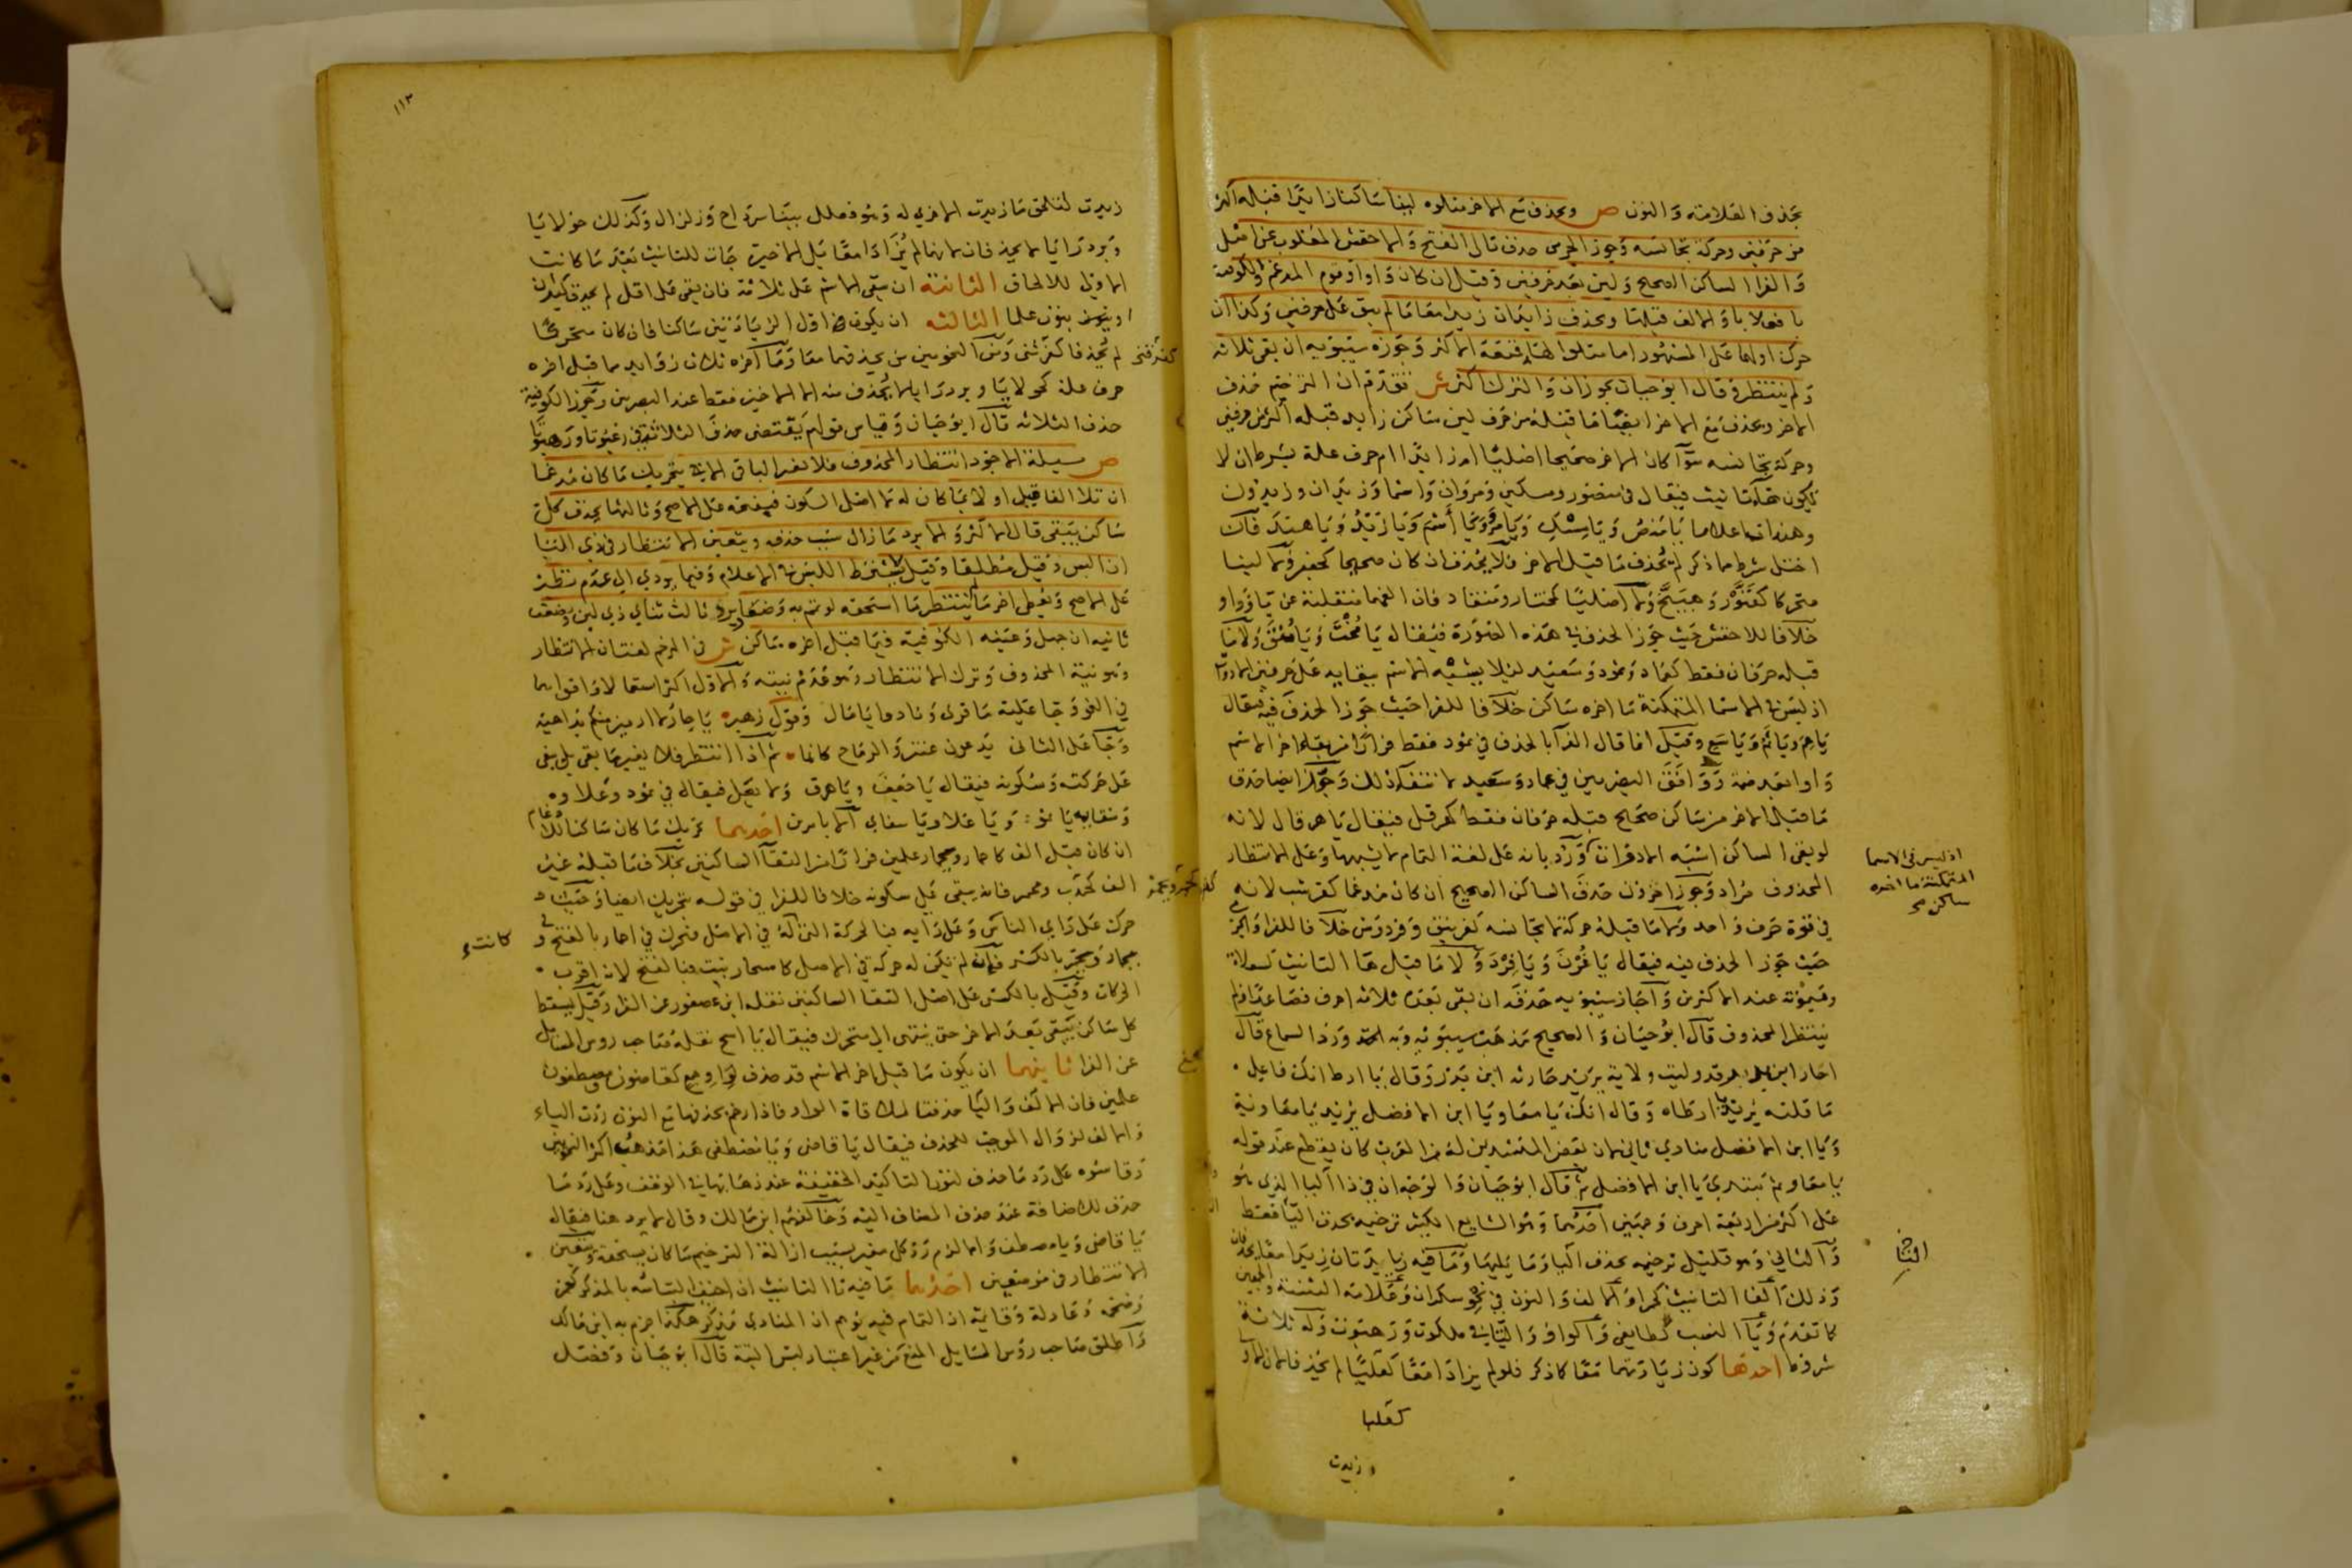 بحذف العلامة والنون ص ويحذف مع الاخر متلوه لينا ساكنا زائدا قبله اكثر
من حرفين وحركة تجانسه وجوز الجرمي حذف تالي الفتح والاخفش المقلوب عن اصل
والفرا الساكن الصحيح ولين بعد حرفين وقيل ان كان واوا وقوم المدغم والكوفية
ويحذف زايدان زيدا معا ما لم يبق على حرفين وكذا ان
حرك اولهما على المشهور اما متلوا لهاء فتمنعه الاكثر وجوزه سيبويه ان بقي ثلاثة
ولم ينتظره قال ابو حيان يجوزان والترك اكثر ش تقدم ان الترخيم حذف
الاخر ويحذف مع الاخر ايضا ما قبله من حرف لين ساكن زايد قبله اكثر من حرفين
وحركة تجانسه سوا كان الاخر صحيحا اصليا ام زايدا ام حرف علة بشرط ان لا
يكون هاء تانيث فيقال في منصور ومسكين ومروان واسما وزيدان وزيدون
وهندات اعلاما يا منص ويا مسك ويا مرو ويا اسم ويا زيد ويا هند فان
اختل شرط مما ذكر لم يحذف ما قبل الاخر فلا يحذف ان كان صحيحا كجعفر ولا لينا
متحركا كقنور وهبيخ ولا اصليا كمختار ومنقاد فان الفهما منقلبة عن ياء وواو
خلافا للاخفش حيث جوز الحذف في هذه الصورة فيقال يا مخت ويا منق ولا ما
قبله حرفان فقط كعماد وثمود وسعيد لئلا يشبه الاسم ببقايه على حرفين الادوات
اذ ليس في الاسما المتمكنة ما اخره ساكن خلافا للفرا حيث جوز الحذف فيه فيقال
يا عم ويا ثم ويا سع وقيل انما قال الفرا بالحذف في ثمود فقط فرارا من بقاء اخر الاسم
واوا بعد ضمة ووافق البصريين في عماد وسعيد لانتفا ذلك وجوز ايضا حذف
ما قبل الاخر من ساكن صحيح قبله حرفان فقط كهرقل فيقال يا هر قال لانه
لو بقي الساكن اشبه الادوات ورد بانه على لغة التمام لا يشبهها وعلى الانتظار
المحذوف مراد وجوز اخرون حذف الساكن الصحيح ان كان مدغما كقرشب لانه
في قوة حرف واحد ولا ما قبله حركة لا تجانسه كغرنيق وفردوس خلافا للفرا والجرمي
حيث جوز الحذف فيه فيقال يا غرن ويا فرد ولا ما قبل هاء التانيث كسعلاة
وميمونة عند الاكثرين واجاز سيبويه حذفه ان بقي بعده ثلاثة احرف فصاعدا ولم
ينتظر المحذوف قال ابو حيان والصحيح مذهب سيبويه وبه ورد السماع قال
احار ابن بدر قد وليت ولاية يريد حارثة ابن بدر وقال يا ارط انك فاعل
ما قلته يريد يا ارطاة وقال انك يا معاويا ابن الافضل يريد يا معاوية
ويا ابن الافضل منادي ثاني لان بعض المنشدين له من العرب كان يقطع عند قوله
يا معاو ثم يبتدي يا ابن الافضل ثم قال ابو حيان والوجه ان في ذا الباب الذي هو
على اكثر من اربعة احرف وجهين احدهما وهو الشايع الكثير ترخيمه بحذف التا فقط
والثاني وهو قليل ترخيمه بحذف التا وما يليها وما فيه زايدتان زيدا معا يحذفان
وذلك الفا التانيث كحمرا والالف والنون في نحو سكران وعلامة التثنية والجمعين
كما تقدم ويا النسب كطايفي والواو والتا في ملكوت ورهبوت وله ثلاثة
شروط احدها كون زيادتهما معا كما ذكر فلو لم يزادا معا كعلبا لم يحذفا لان الاو
زيدت
اذ ليس في الاسما
المتمكنة ما اخره
ساكن صح
التا
١١٣
زيدت لتلحق ما زيدت الاخري له وهو فعلل ببنا سرداح وزلزال وكذلك حولايا
وبردرايا لا يحذفان لانهما لم يزادا معا بل الاخيرة جات للتانيث بعد ما كانت
الاولى للالحاق الثانية ان يبقي الاسم على ثلاثة فان بقي على اقل لم يحذف كيدان
وبنون علما الثالثه ان يكون اول الزيادتين ساكنا فان كان متحركا
لم يحذفا كفرتنى ومن النحويين من يحذفهما معا وما اخره ثلاث زوايد ما قبل اخره
حرف علة كحولايا وبردرايا لا يحذف منه الا الاخير فقط عند البصريين وجوز الكوفية
حذف الثلاثة قال ابو حيان وقياس قولهم يقتضي حذف الثلاثة في رغبوتا ورهبوتا
ص مسيلة الاجود انتظار المحذوف فلا تغير الباقي الا بتحريك ما كان مدغما
ان تلا الفا قيل او لا بما كان له لا اصل السكون فيفتحه على الاصح وثالثها يحذف كل
ساكن يبقى قال الاكثر والا برد ما زال سبب حذفه ويتعين الانتظار في ذي التا
ان البس وقيل مطلقا وقيل لا يشترط اللبس في الاعلام وفيما يودي الي عدم نظير
على الاصح ويعطي اخر ما لم ينتظر ما استحقه لو تمم به وضعا
ثانيه ان جهل وعينه الكوفية فيما قبل اخره ساكن ش في المرخم لغتان الانتظار
وهو نية المحذوف وترك الانتظار وهو عدم نيته والاول اكثر استعمالا واقواهما
في النحو وجا عليه ما قري ونادوا يا مال وقول زهير يا حار لا ارمين منكم بداهية
وجا على الثاني يدعون عنتر والرماح كانها ثم اذا انتظر فلا يغير ما بقي بل يبقى
على حركته وسكونه فيقال يا جعف ويا هرق ولا يعل فيقال في ثمود وعلاوة
وسقاية يا ثمو ويا علاو ويا سقاي الا بامرين احدهما تحريك ما كان ساكنا للادغام
ان كان قبل الف كاحمار ومحمار علمين فرارا من التقا الساكنين بخلاف ما قبله غير
الف كخدب ومحمر فانه يبقي على سكونه خلافا للفرا في قوله بتحريك ايضا وحيث
حرك على راي الناس وعلى رايه فبالحركة التي له في الاصل فيحرك في احمار بالفتح وفي
محمار ومحمر بالكسر فان لم يكن له حركة في الاصل كاسحار نبت فبالفتح لانه اقرب
الحركات وقيل بالكسر على اصل التقا الساكنين نقله ابن عصفور عن الفرا وقيل يسقط
كل ساكن يبقى بعد الاخر حتى ينتهي الي متحرك فيقال يا اسح نقله صاحب روس المسايل
عن الفرا ثانيهما ان يكون ما قبل اخر الاسم قد حذف لواو جمع كقاضون ومصطفون
علمين فان الالف واليا حذفتا لملاقاة الواو فاذا رخم بحذفها مع النون ردت الياء
والالف لزوال الموجب للحذف فيقال يا قاضي ويا مصطفى هذا مذهب اكثر النحويين
وقاسوه على رد ما حذف لنون التاكيد الخفيفة عند ذهابها في الوقف وعلى رد ما
حذف للاضافة عند حذف المضاف اليه وخالفهم ابن مالك وقال لا يرد هنا فيقال
يا قاض ويا مصطف والا لزم رد كل مغير بسبب ازالة الترخيم ما كان يستحقه ويتعين
الانتظار في موضعين احدهما ما فيه تا التانيث ان خيف التباسه بالمذكر كعمرة
وضخمة وعادلة وقايمة لان التمام فيه يوهم ان المنادي مذكر هكذا جزم به ابن مالك
واطلق صاحب روس المسايل المنع من غير اعتبار لبس البتة قال ابو حيان وفصل
كانت